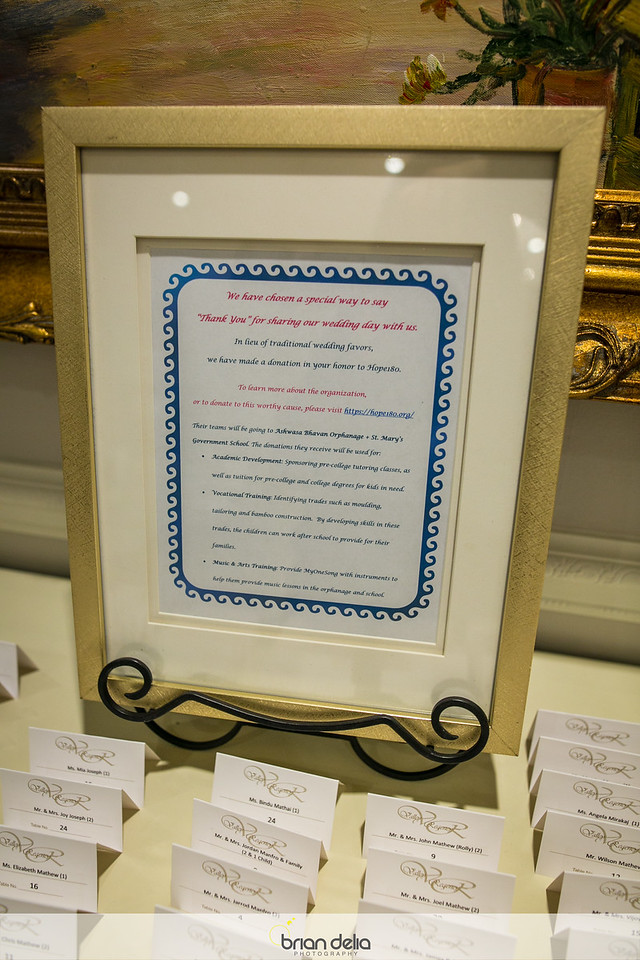 We have chosen a special way to say
"Thank You" for sharing our wedding day with us.
In lieu of traditional wedding favors,
we have made a donation in your honor to Hope180.
To learn more about the organization,
or to donate to this worthy cause, please visit https://hope180.org/
Their teams will be going to Ashwasa Bhavan Orphanage + St. Mary's
Government School. The donations they receive will be used for:
• Academic Development: Sponsoring pre-college tutoring classes, as
well as tuition for pre-college and college degrees for kids in need.
• Vocational Training: Identifying trades such as moulding,
tailoring and bamboo construction. By developing skills in these
trades, the children can work after school to provide for their
families.
• Music & Arts Training: Provide MyOneSong with instruments to
help them provide music lessons in the orphanage and school.
Ms. Mia Joseph (1)
Mr. & Mrs. Joy Joseph (2)
24
Ms. Elizabeth Mathew (1)
16
Ms. Bindu Mathai (1)
24
Mr. & Mrs. Jordan Manfro & Family
(2 & 1 Child)
Mr. & Mrs.
Mr. & Mrs. John Mathew (Rolly) (2)
9
Mr. & Mrs. Joel Mathew (2)
Ms. Angela Mirakaj (1)
Mr. Wilson Mathew
brian delia
PHOTOGRAPHY